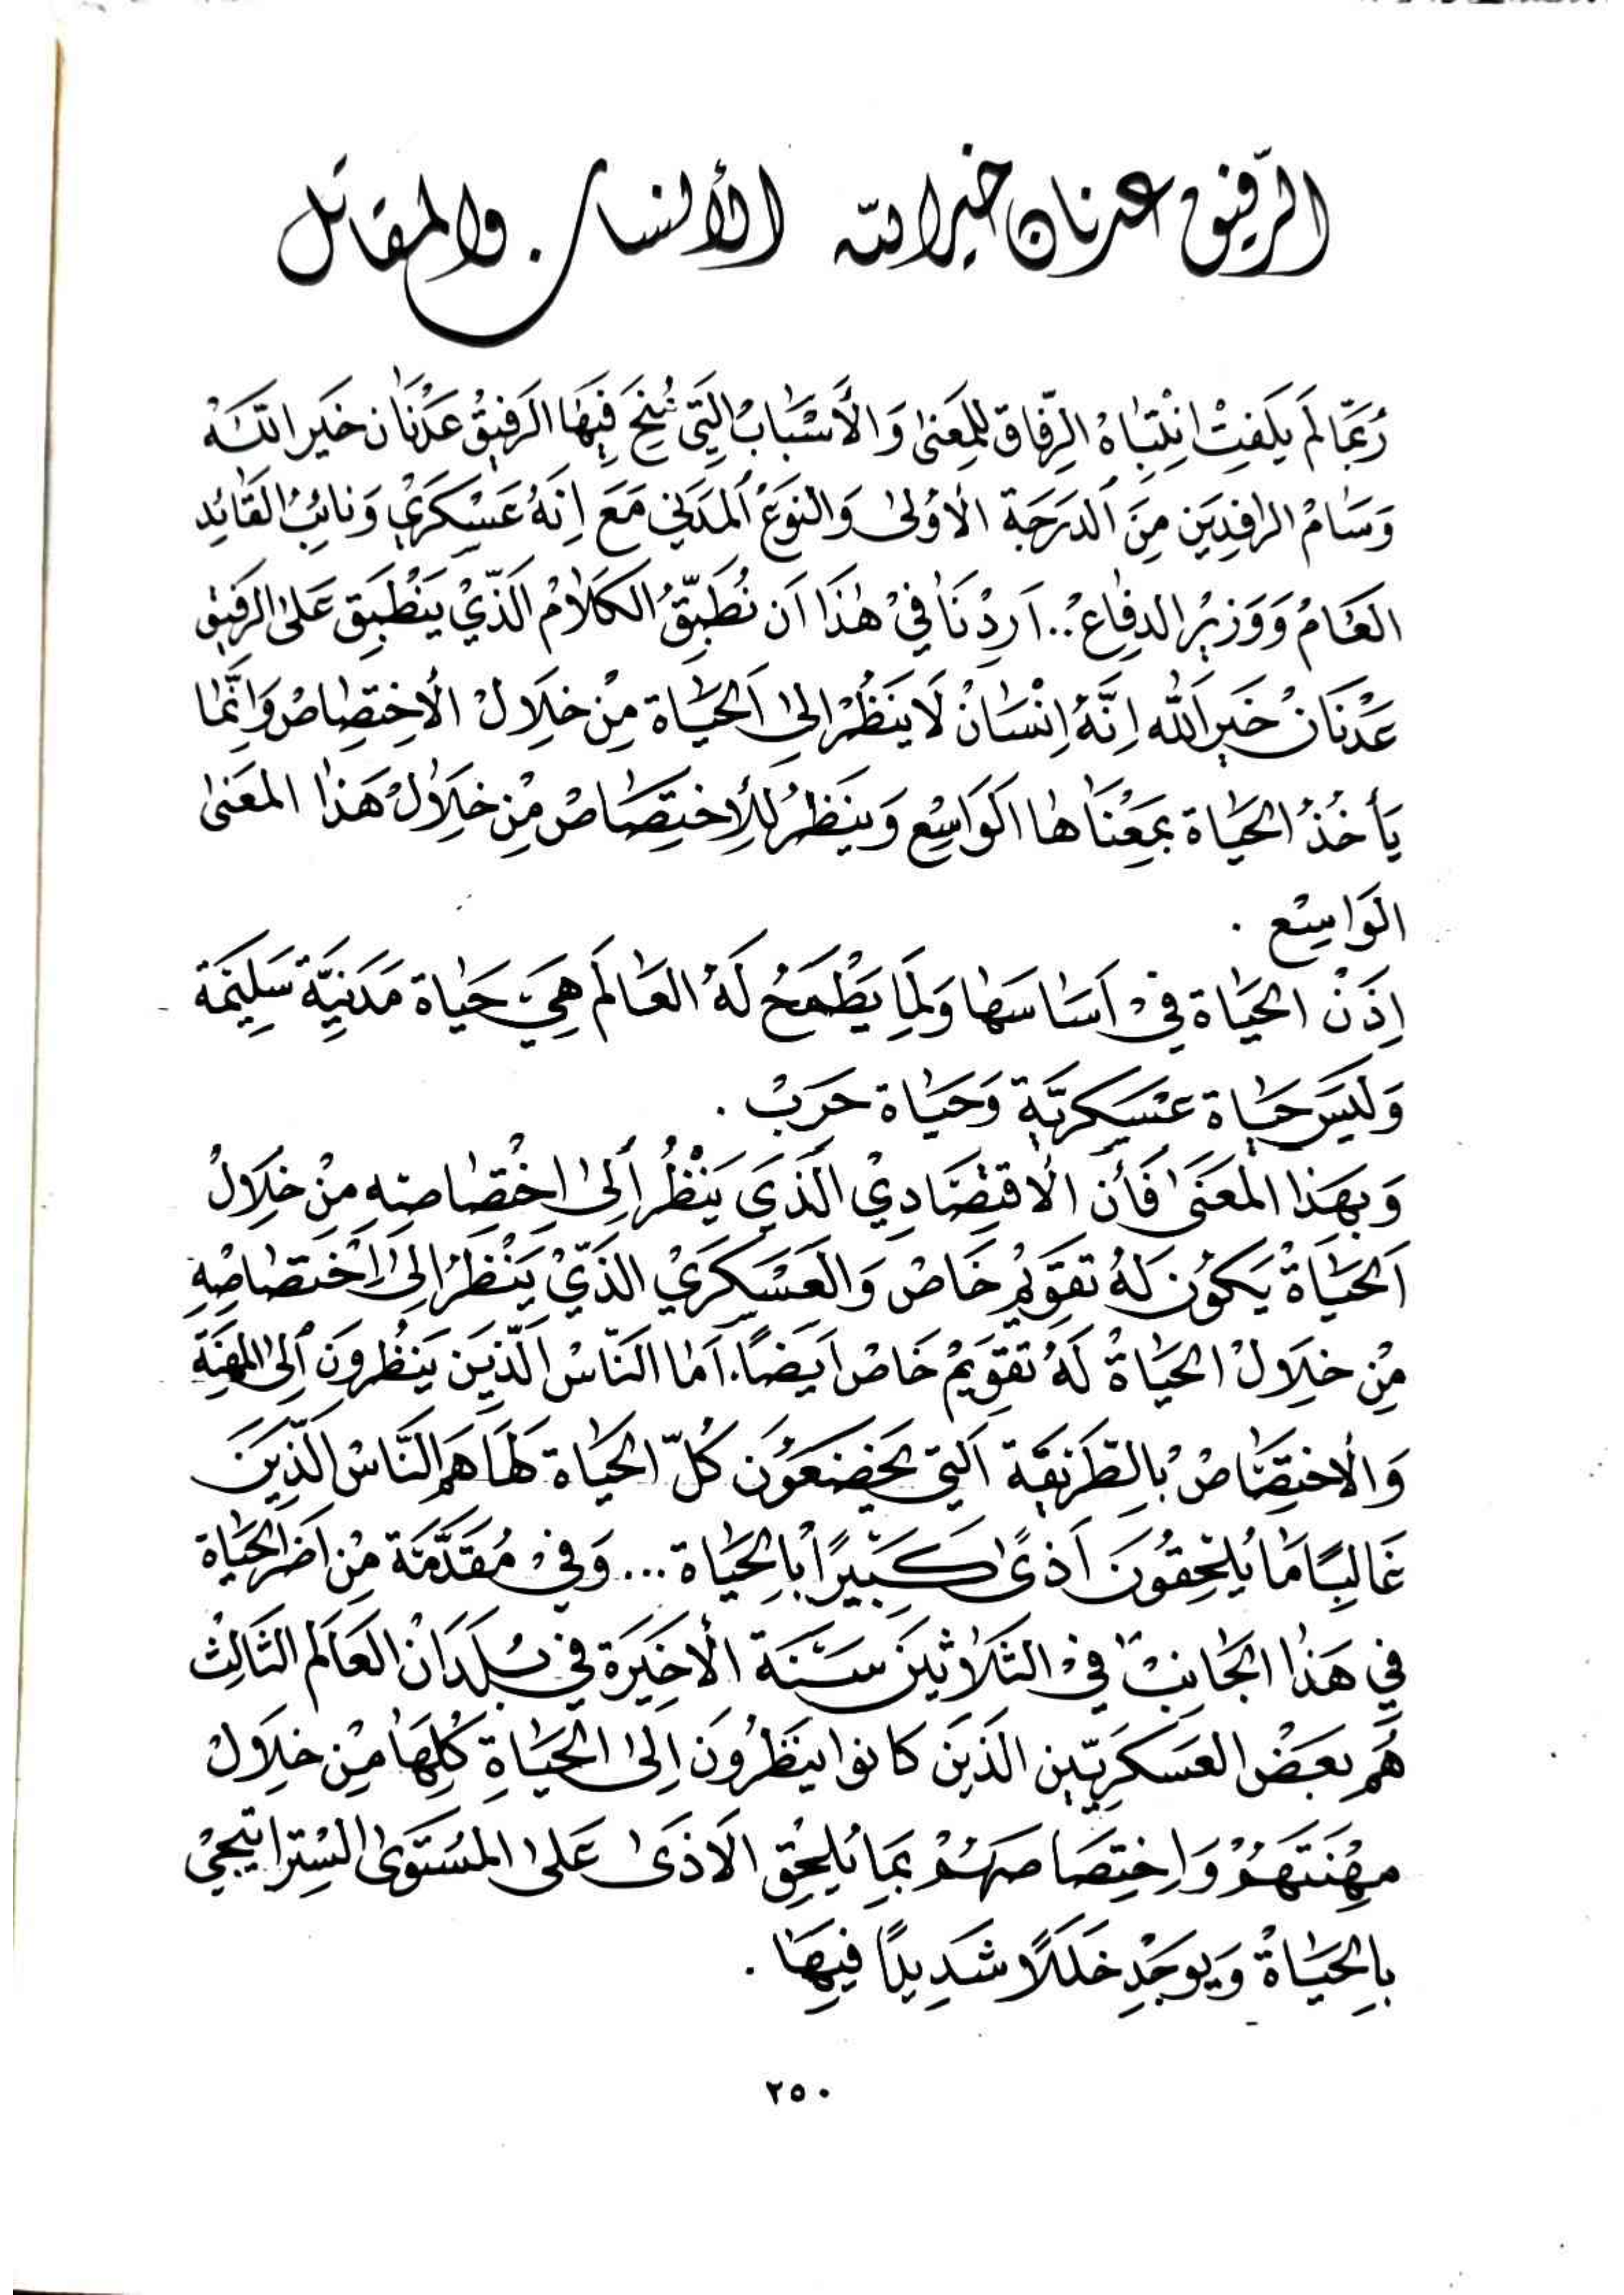 الرفيق عدنان خير الله الأنسان والمقاتل
رُبَّما لَم يَلفِتْ انْتِباهُ الرِّفاق لِلمَعنى وَالأَسْبابُ الَّتي مُنِحَ فيهَا الرَفيقُ عَدْنَان خَير اللَّه
وَسَامْ الرافِدَين مِنَ الدَرَجَة الأُولى وَالنَوعْ المَدَني مَعَ اِنَهُ عَسْكَرَي وَنائِبُ القَائد
العَامُ وَوَزيرُ الدِفاعْ.. اَردْنَا فيْ هٰذَا اَن نُطَبِّقُ الكَلامْ الَذّيْ يَنْطَبِق عَلىٰ الرَفيق
عَدْنَانْ خَير اَللّه اِنَّهُ اِنْسَانْ لَا يَنظُرْ الىٰ اَلحَيَاة مِنْ خِلَالْ الأختِصَاصْ وَاِنَّمَا
يَأخُذُ الحَيَاة بمَعْنَاها الوَاسِع وَيَنظُرُ لِلأِختِصَاصْ مِنْ خِلَالْ هَذا المعَنىٰ
الوَاسِع .
اِذَنْ الحَيَاة فيْ اَسَاسَها وَلمَا يَطْمَحُ لَهُ العَالَم هِيَ حَيَاة مَدَنيَّة سَلِيمَة
وَليَسَ حَيَاة عسَكريَّة وَحَيَاة حَرَبْ .
وَبِهَذا المَعنَىٰ فَأن الاقتِصَادِيْ الَذَي يَنْظُرُ أِلىٰ اِخْتِصَاصِهِ مِنْ خِلَالْ
اَلحَيَاةْ يَكُون لَهُ تقَوِيمْ خَاصْ وَالعَسْكَرَيْ الذَّيْ يَنْظُرُ اِلىٰ اَخْتصَاصِهِ
مِنْ خِلَالْ الحَيَاةْ لَهُ تَقوِيمْ خَاصْ اَيَضاً. اَما النَاسْ الَّذِيَن يَنظُرونَ أِلى المهنَة
وَالأختِصَاصْ بِالطَريقَة اَلتي يخَضعَوُن كُلّ الحَيَاة لَهَا هَم النَاسْ الَّذِيَنَ
غَالبًا مَا يُلحِقُونَ اَذىً كَبيرًا بِالحَيَاة ... وَفيْ مُقَدَّمَة مِنْ اَضَر الحَيَاة
في هَذا الجَانِبْ فيْ الثَلَاثيَن سَنَة الأخيَرَة في بُلدَانْ العَالَم الثَالِثْ
هُم بعَضْ العَسكَرِيّين الَذينَ كانوا ينَظُرُونَ اِلىٰ الحَيَاةِ كُلِهَا مِنْ خِلَالْ
مِهْنَتَهُمْ وَاِختِصَاصَهُمْ بمَا يُلحِق الاَذىٰ عَلىٰ المسُتَوىٰ السْتِراتيجيْ
بالحَيَاةْ وَيوجَدِ خَللاً شَديداً فيهَا .
٢٥٠